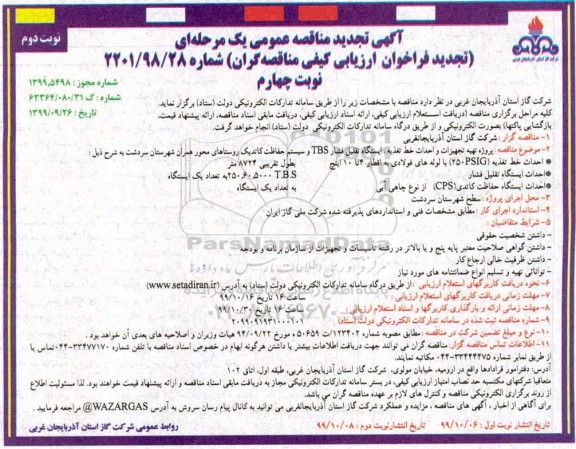 آگهی تجدید مناقصه عمومی یک مرحله‌ای
(تجدید فراخوان ارزیابی کیفی مناقصه‌گران) شماره ۲۲۰۱/۹۸/۲۸
نوبت چهارم
نوبت دوم
شماره مجوز : ۱۳۹۹٫۵۴۹۸
شماره: گ ۶۳۳۶۴/۰۸۰/۳۱
تاریخ: ۱۳۹۹/۰۹/۲۶
شرکت گاز استان آذربایجان غربی در نظر دارد مناقصه با مشخصات زیر را از طریق سامانه تدارکات الکترونیکی دولت (ستاد) برگزار نماید.
کلیه مراحل برگزاری مناقصه (دریافت استعلام ارزیابی کیفی، ارائه اسناد ارزیابی کیفی، دریافت مابقی اسناد مناقصه، ارائه پیشنهاد قیمت،
بازگشایی پاکتها) بصورت الکترونیکی و از طریق درگاه سامانه تدارکات الکترونیکی دولت (ستاد) انجام خواهد گرفت.
۱- مناقصه گزار : شرکت گاز استان آذربایجانغربی
۲- موضوع مناقصه: پروژه تهیه تجهیزات و احداث خط تغذیه ایستگاه تقلیل فشار TBS و سیستم حفاظت کاتدیک روستاهای محور همران شهرستان سردشت به شرح ذیل :
● احداث خط تغذیه (۲۵۰PSIG) با لوله های فولادی به اقطار ۴ تا ۱۰ اینچ بطول تقریبی ۸۷۲۴ متر
● احداث ایستگاه تقلیل فشار T.B.S ۵۰۰۰ به تعداد یک ایستگاه
● احداث ایستگاه حفاظت کاتدی(CPS) از نوع چاهی آبی به تعداد یک ایستگاه
۳- محل اجرای پروژه : سطح شهرستان سردشت
۴- استاندارد اجرای کار : مطابق مشخصات فنی و استانداردهای پذیرفته شده شرکت ملی گاز ایران
۵- شرایط متقاضیان :
- داشتن شخصیت حقوقی
- داشتن گواهی صلاحیت معتبر پایه پنج و یا بالاتر در رشته تاسیسات و تجهیزات از سازمان برنامه و بودجه
- داشتن ظرفیت خالی ارجاع کار
- توانائی تهیه و تسلیم انواع ضمانتنامه های مورد نیاز
۶- نحوه دریافت کاربرگهای استعلام ارزیابی : از طریق درگاه سامانه تدارکات الکترونیکی دولت (ستاد) به آدرس (www.setadiran.ir)
۷- مهلت زمانی دریافت کاربرگهای استعلام ارزیابی : ساعت ۱۶ تاریخ ۹۹/۱۰/۱۶
۸- مهلت زمانی ارائه و بارگذاری کاربرگها و اسناد استعلام ارزیابی : ساعت ۱۶ تاریخ ۹۹/۱۰/۳۰
۹- شماره مناقصه ثبت شده در سامانه تدارکات الکترونیکی دولت (ستاد)
۱۰- نوع و مبلغ تضمین شرکت در مناقصه : مطابق مصوبه شماره ۱۲۳۴۰۲/ت ۵۰۶۵۹ه مورخ ۹۴/۰۹/۲۲ هیات وزیران و اصلاحیه های بعدی آن خواهد بود .
۱۱- اطلاعات تماس مناقصه گزار: مناقصه گران می توانند جهت دریافت اطلاعات بیشتر یا داشتن هرگونه ابهام در خصوص اسناد مناقصه با تلفن شماره ۳۳۴۷۷۱۷۰-۰۴۴ تماس یا
از طریق نمابر شماره ۳۳۴۴۴۴۷۵-۰۴۴ مکاتبه نمایند.
آدرس: دفتر امور قراردادها واقع در ارومیه، خیابان مولوی، شرکت گاز استان آذربایجان غربی، طبقه اول، اتاق ۱۰۲
متعاقبا شرکتهای مکتسبه حد نصاب امتیاز ارزیابی کیفی، در بستر سامانه تدارکات الکترونیکی مجاز به دریافت مابقی اسناد مناقصه و ارائه پیشنهاد قیمت خواهند بود. لذا مسئولیت اطلاع
از روند برگزاری الکترونیکی مناقصه و کنترل های لازم بر عهده مناقصه گران می باشد.
برای آگاهی از اخبار، آگهی های مناقصه، مزایده و عملکرد شرکت گاز استان آذربایجانغربی می توانید به کانال پیام رسان سروش به آدرس WAZARGAS@ مراجعه فرمایید .
تاریخ انتشار نوبت اول : ۹۹/۱۰/۰۶ تاریخ انتشار نوبت دوم : ۹۹/۱۰/۰۸ روابط عمومی شرکت گاز استان آذربایجان غربی